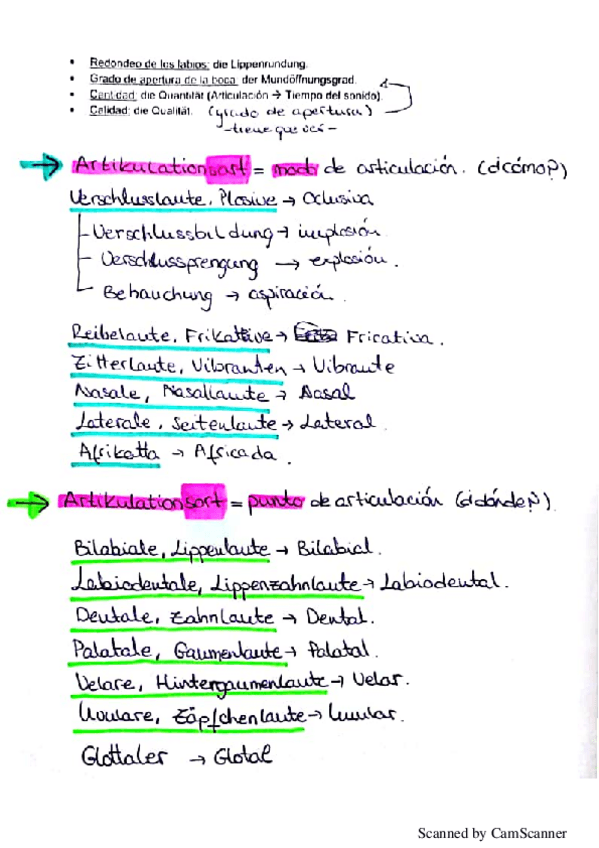 • Redondeo de los labios: die Lippenrundung.
• Grado de apertura de la boca: der Mundöffnungsgrad.
• Cantidad: die Quantität (Articulación → Tiempo del sonido).
• Calidad: die Qualität. (grado de apertura)
- tiene que ver -
→ Artikulationsart = modo de articulación. (¿cómo?)
Verschlusslaute, Plosive → Oclusiva
Verschlussbildung → implosión.
Verschlussprengung → explosión.
Behauchung → aspiración.
Reibelaute, Frikative → Fricativa.
Zitterlaute, Vibranten → Vibrante
Nasale, Nasallaute → Nasal
Laterale, Seitenlaute → Lateral.
Afrikatta → Africada.
→ Artikulationsort = punto de articulación (¿dónde?)
Bilabiale, Lippenlaute → Bilabial.
Labiodentale, Lippenzahnlaute → Labiodental.
Dentale, Zahnlaute → Dental.
Palatale, Gaumenlaute → Palatal.
Velare, Hintergaumenlaute → Velar.
Uvulare, Zäpfchenlaute → Uvular.
Glottaler → Glotal
Scanned by CamScanner